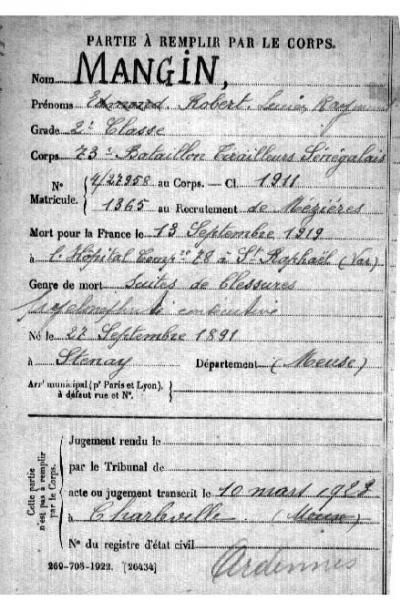 PARTIE À REMPLIR PAR LE CORPS.
Nom MANGIN,
Prénoms Edmond. Robert. Lucien
Grade 2e Classe
Corps 73e Bataillon Tirailleurs Sénégalais
N° Matricule. { 4/27958 au Corps. — Cl. 1911
1365 au Recrutement de Mézières
Mort pour la France le 13 Septembre 1919
à l'Hôpital Compre 78 à St Raphaël (Var)
Genre de mort Suites de blessures
consécutive
Né le 27 Septembre 1891
à Stenay Département (Meuse)
Arrt municipal (pr Paris et Lyon), à défaut rue et N°. }
Cette partie n'est pas à remplir par le Corps.
Jugement rendu le
par le Tribunal de
acte ou jugement transcrit le 10 mars 1922
à Charleville. (Meuse)
N° du registre d'état civil
Ardennes
269-708-1922. [26434]